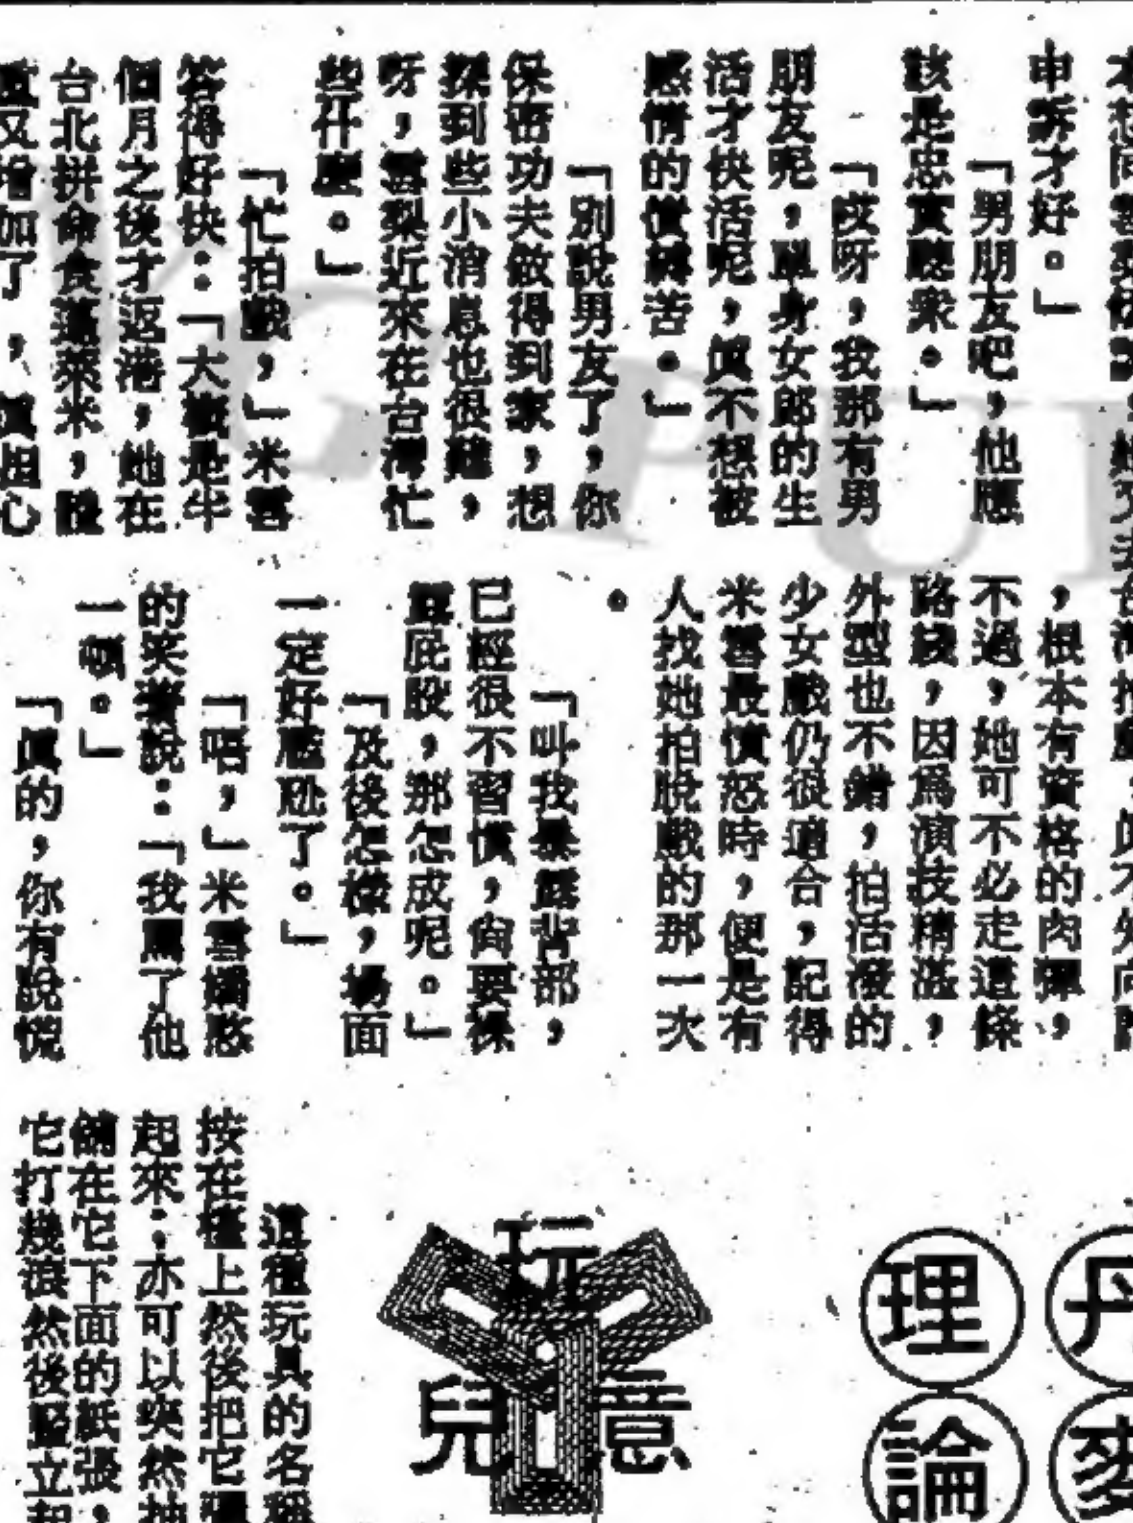 申訴才好。」
「男朋友吧，他應
該是忠實聽衆。」
「哎呀，我那有男
朋友呢，單身女郎的生
活才快活呢，眞不想被
感情的慣縛苦。」
「別說男友了，你
保密功夫做得到家，想
探到些小消息也很難，
呀，雪梨近來在台灣忙
些什麼。」
「忙拍戲，」米雪
答得好快：「大概是半
個月之後才返港，她在
台北拼命食蓬萊米，體
又增加了，心
，根本有資格的肉彈，
不過，她可不必走這條
路綫，因爲演技精湛，
外型也不錯，拍活潑的
少女戲仍很適合，記得
米雪最憤怒時，便是有
人找她拍脫戲的那一次
。
「叫我暴露背部，
已經很不習慣，尙要裸
露屁股，那怎成呢。」
「及後怎樣，場面
一定好尷尬了。」
「唔，」米雪嬌憨
的笑着說：「我罵了他
一頓。」
「眞的，你有說慌
丹麥
理論
玩意兒
這種玩具的名稱
按在檯上然後把它
起來；亦可以突然抽
倒在它下面的紙張，
它打幾滾然後豎立起